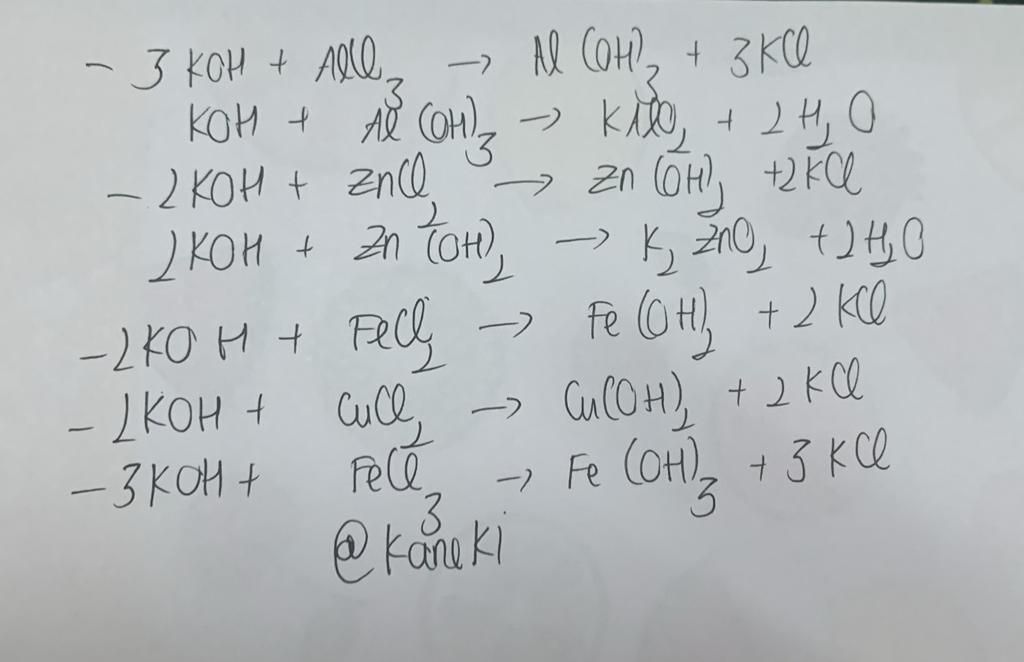 - 3 KOH + AlCl₃ → Al(OH)₃ + 3KCl
KOH + Al(OH)₃ → KAlO₂ + 2H₂O
- 2KOH + ZnCl₂ → Zn(OH)₂ + 2KCl
2KOH + Zn(OH)₂ → K₂ZnO₂ + 2H₂O
- 2KOH + FeCl₂ → Fe(OH)₂ + 2KCl
- 2KOH + CuCl₂ → Cu(OH)₂ + 2KCl
- 3KOH + FeCl₃ → Fe(OH)₃ + 3KCl
@Kaneki